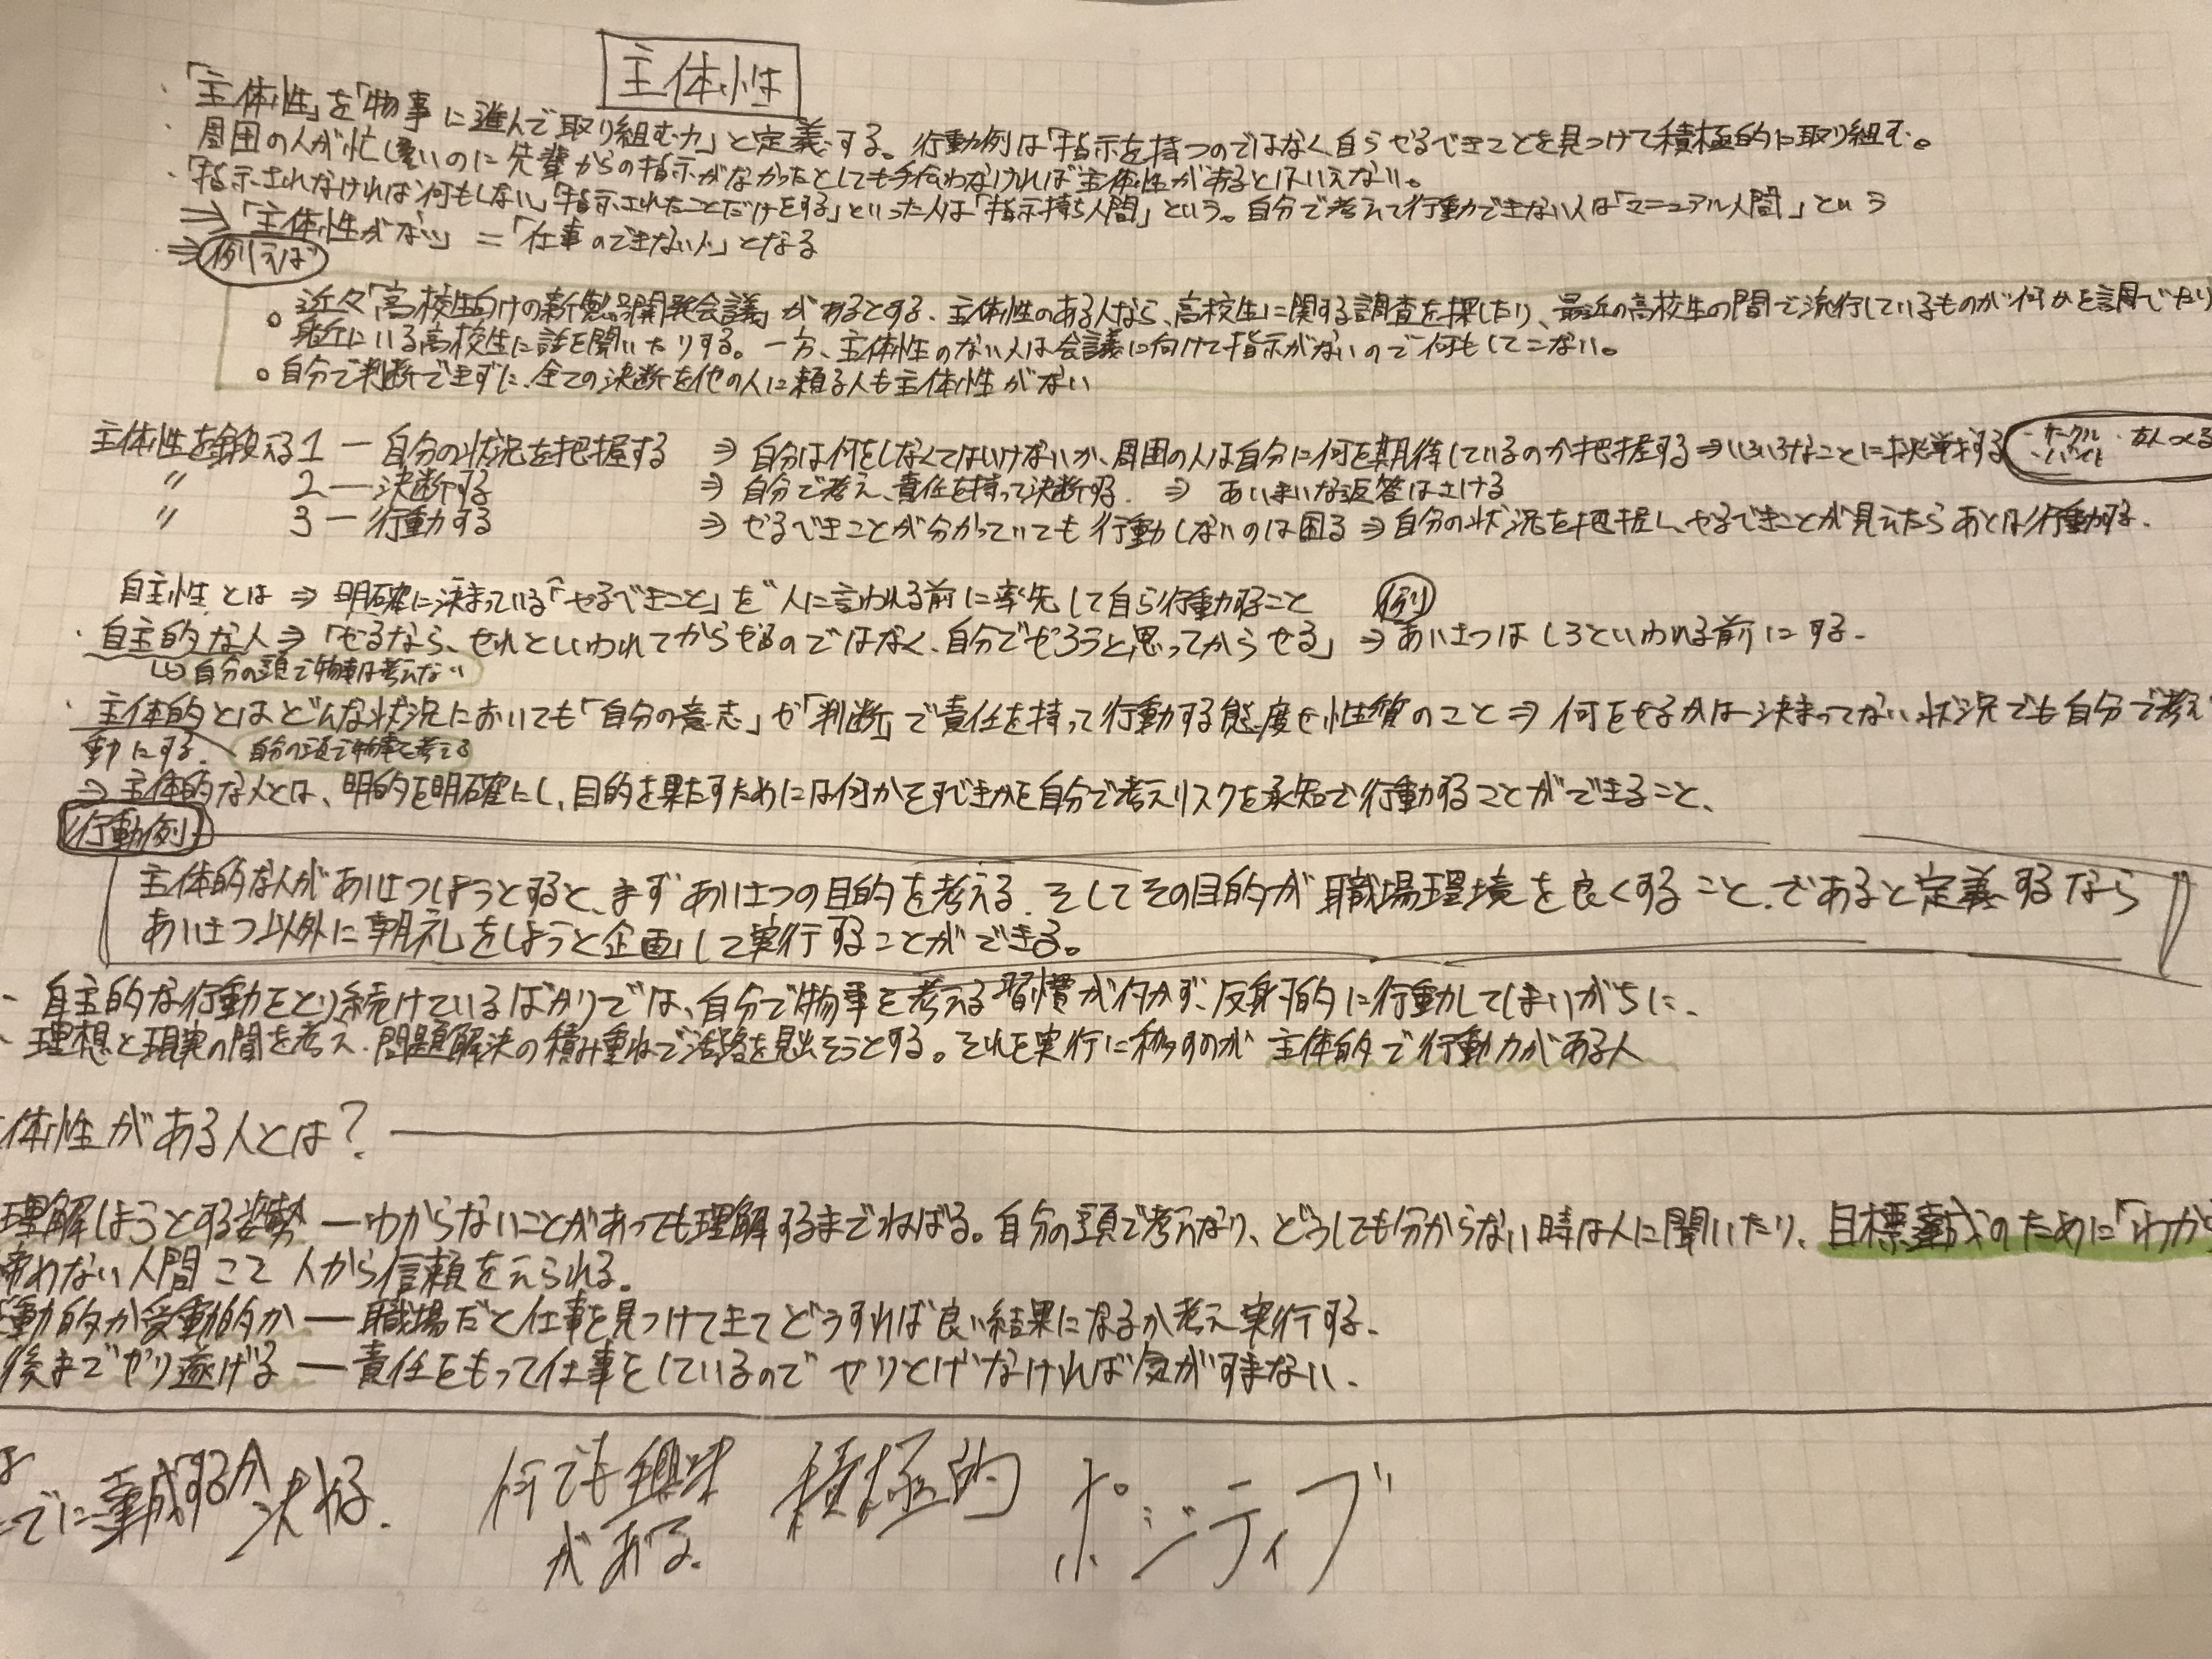 主体性
・「主体性」を「物事に進んで取り組む力」と定義する。行動例は「指示を持つのではなく自らやるべきことを見つけて積極的に取り組む。
・周囲の人が忙しいのに先輩からの指示がなかったとしても手伝わなければ主体性があるとはいえない。
・「指示されなければ何もしない」「指示されたことだけをする」といった人は「指示持ち人間」という。自分で考えて行動できない人は「マニュアル人間」という
⇒「主体性がない」=「仕事のできない人」となる
⇒例えば
○近々「高校生向けの新製品開発会議」があるとする、主体性のある人なら、高校生に関する調査を探したり、最近の高校生の間で流行しているものが何かを調べたり
身近にいる高校生に話を聞いたりする。一方、主体性のない人は会議に向けて指示がないので何もしてこない。
○自分で判断できずに、全ての決断を他の人に頼る人も主体性がない
主体性を鍛える1 ー 自分の状況を把握する ⇒ 自分は何をしなくてはいけないか、周囲の人は自分に何を期待しているのか把握する⇒いろいろなことに挑戦する ・サークル ・バイト ・友人つくる
〃 2 ー 決断する ⇒ 自分で考え、責任を持って決断する. ⇒ あいまいな返答はさける
〃 3 ー 行動する ⇒ やるべきことが分かっていても行動しないのは困る⇒自分の状況を把握し、やるべきことが見えたらあとは行動する.
自主性とは ⇒ 明確に決まっている「やるべきこと」を"人に言われる前に率先して自ら行動すること 例
・自主的な人⇒「やるなら、やれといわれてからやるのではなく、自分でやろうと思ってからやる」⇒あいさつはしろといわれる前にする.
↳自分の頭で物事は考えない
・主体的とはどんな状況においても「自分の意志」や「判断」で責任を持って行動する態度や性質のこと⇒何をやるかは決まってない状況でも自分で考え
動にする. 自分の頭で物事を考える
⇒主体的な人とは、明的を明確にし、目的を果たすためには何かをすべきかを自分で考えリスクを承知で行動することができること、
行動例
主体的な人があいさつしようとすると、まずあいさつの目的を考える. そしてその目的が職場環境を良くすること、であると定義するなら
あいさつ以外に朝礼をしようと企画して実行することができる。
・自主的な行動をとり続けているばかりでは、自分で物事を考える習慣が付かず、反射的に行動してしまいがちに、
・理想と現実の間を考え、問題解決の積み重ねで活路を見出そうとする。それを実行に移すのが主体的で行動力がある人
体性がある人とは?
理解しようとする姿勢 ー わからないことがあっても理解するまでねばる。自分の頭で考えたり、どうしても分からない時は人に聞いたり、目標達成のために「わか
諦めない人間こそ人から信頼をえられる。
動的か受動的か ー 職場だと仕事を見つけてきてどうすれば良い結果になるか考え実行する.
後までやり遂げる ー 責任をもって仕事をしているのでやりとげなければ気がすまない.
でに達成するか決める. 何でも興味がある. 積極的 ポジティブ